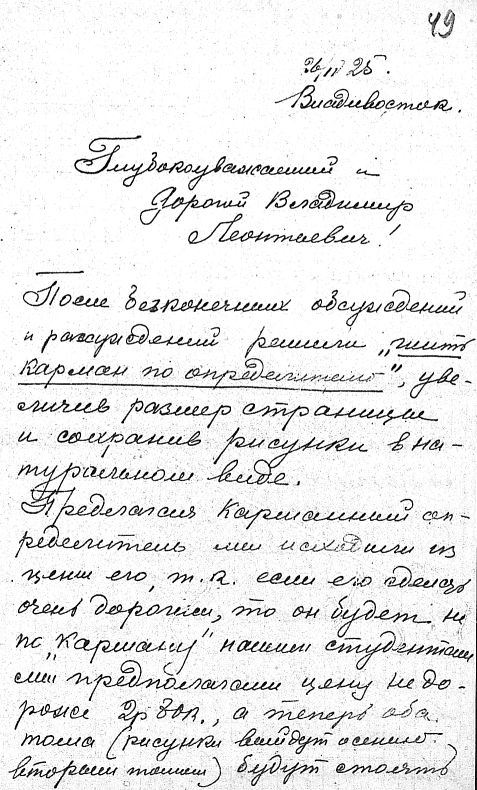 49
26/IV 25.
Владивосток.
Глубокоуважаемый и
Дорогой Владимир
Леонтьевич!
После безконечных обсуждений
и рассуждений решили "шить
карман по определителю", уве-
личив размер страницы
и сохранив рисунки в на-
туральном виде.
Предлагая карманный оп-
ределитель мы исходили из
цены его, т.к. если его сделать
очень дорогим, то он будет не
по "карману" нашим студентам
мы предполагали цену не до-
роже 2р 50к., а теперь оба
тома (рисунки выйдут осенью
вторым томом) будут стоить